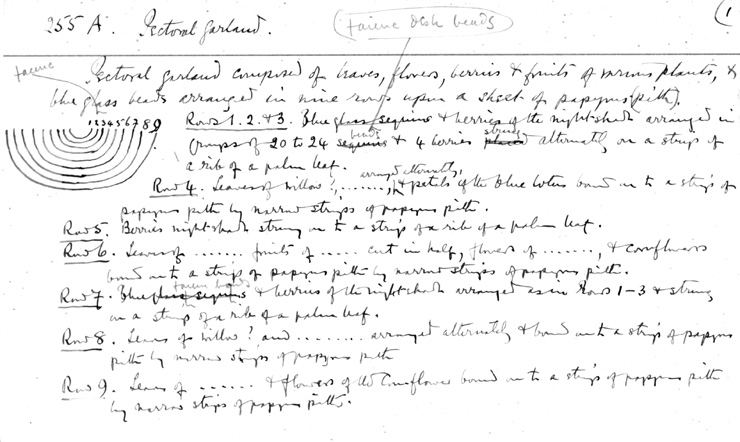 255 A. Pectoral garland. (faience disk beads) (1
Pectoral garland composed of leaves, flowers, berries & fruits of various plants, &
faience
blue glass beads arranged in nine rows upon a sheet of papyrus (pith).
123456789
Rows 1. 2. & 3. Blue glass sequins & berries of the nightshade arranged in
groups of 20 to 24 sequins beads & 4 berries placed strung alternately on a strip of
a rib of a palm leaf.
Row 4. Leaves of willow?, ........, arranged alternately, & petals of the blue lotus bound on to a strip of
papyrus pith by narrow strips of papyrus pith.
Row 5. Berries nightshade strung on to a strip of a rib of a palm leaf.
Row 6. Leaves of ........ fruits of ..... cut in half, flowers of ......., & cornflowers
bound on to a strip of papyrus pith by narrow strips of papyrus pith.
Row 7. Blue glass sequins faience beads & berries of the nightshade arranged as in Rows 1-3 & strung
on a strip of a rib of a palm leaf.
Row 8. Leaves of willow? and ......... arranged alternately & bound on to a strip of papyrus
pith by narrow strips of papyrus pith
Row 9. Leaves of ....... & flowers of the cornflower bound on to a strip of papyrus pith
by narrow strips of papyrus pith.